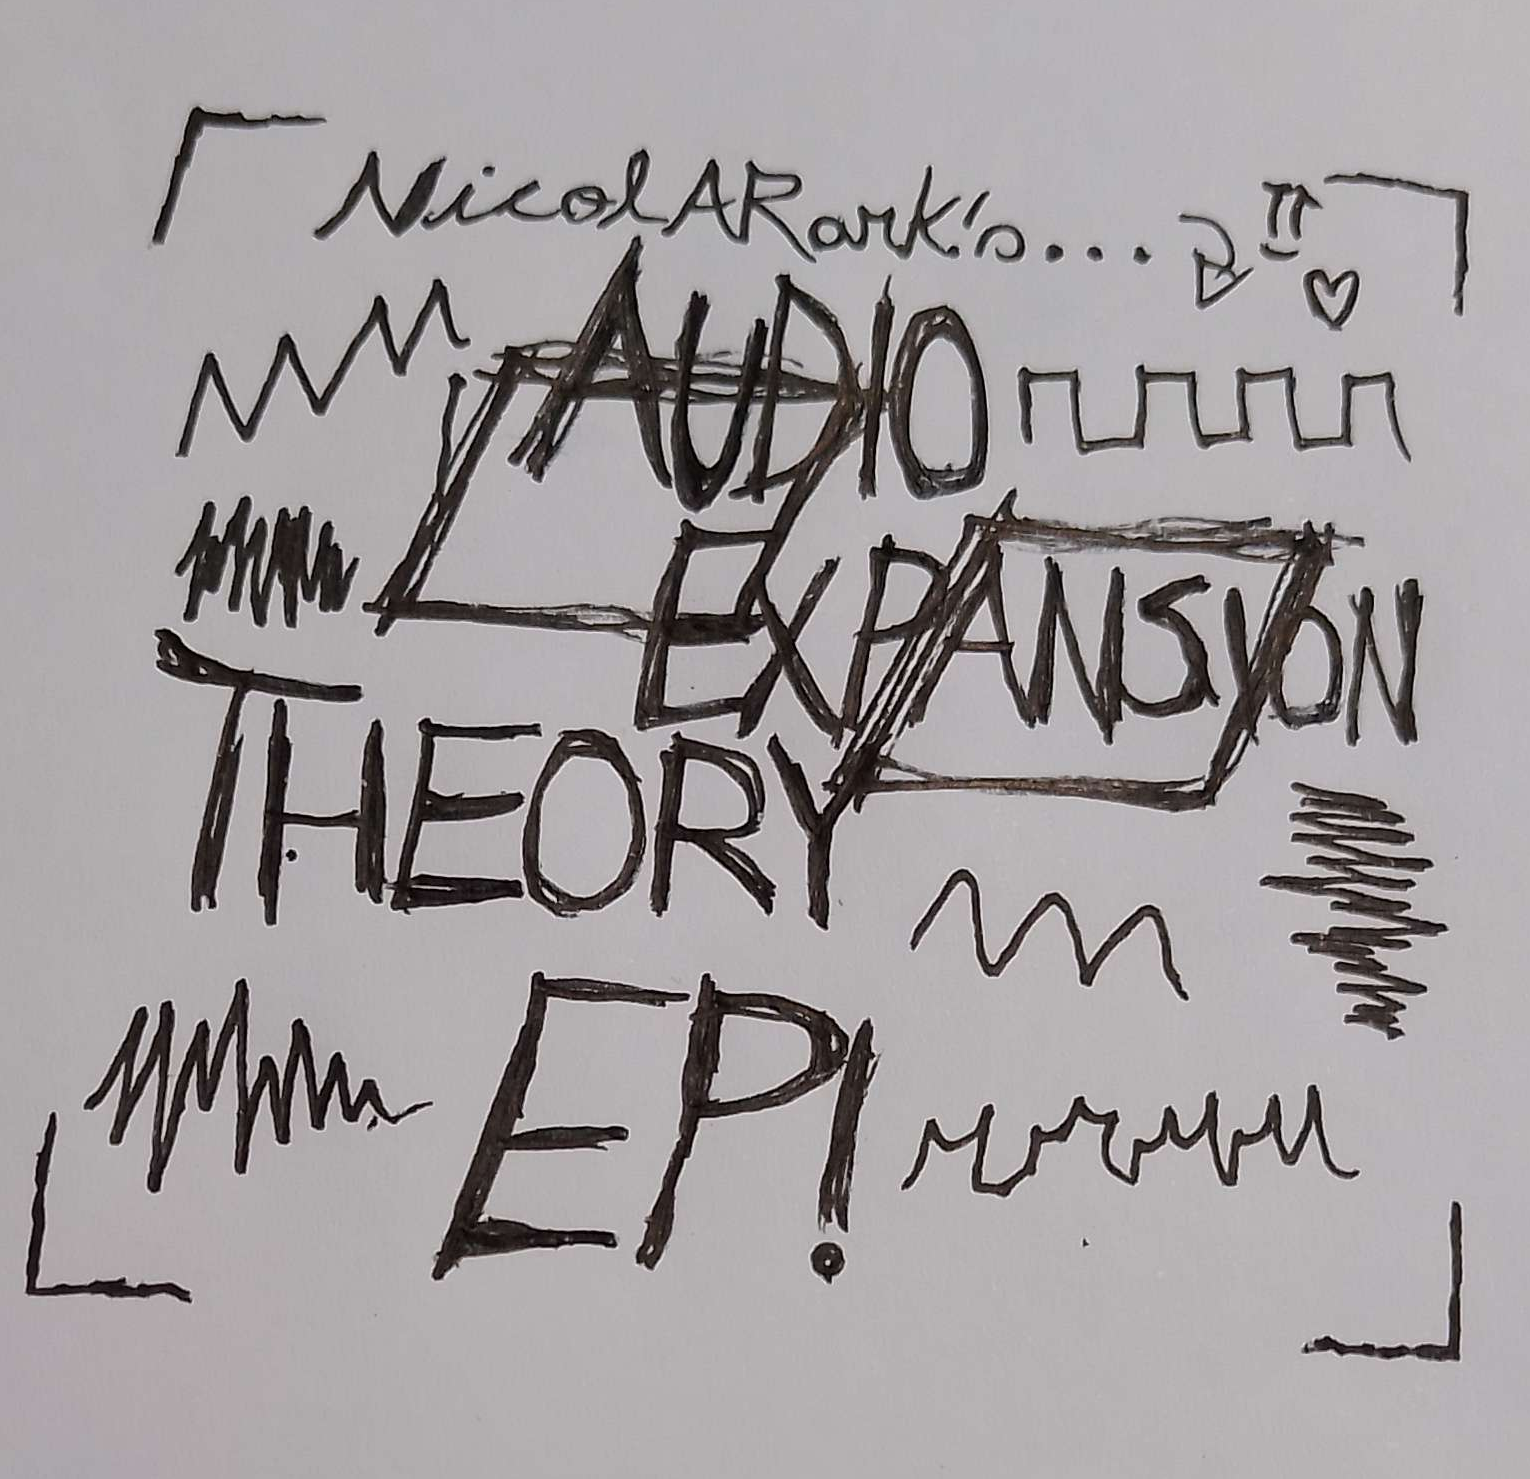 NicolARark's...
AUDIO
EXPANSYON
THEORY
EP!